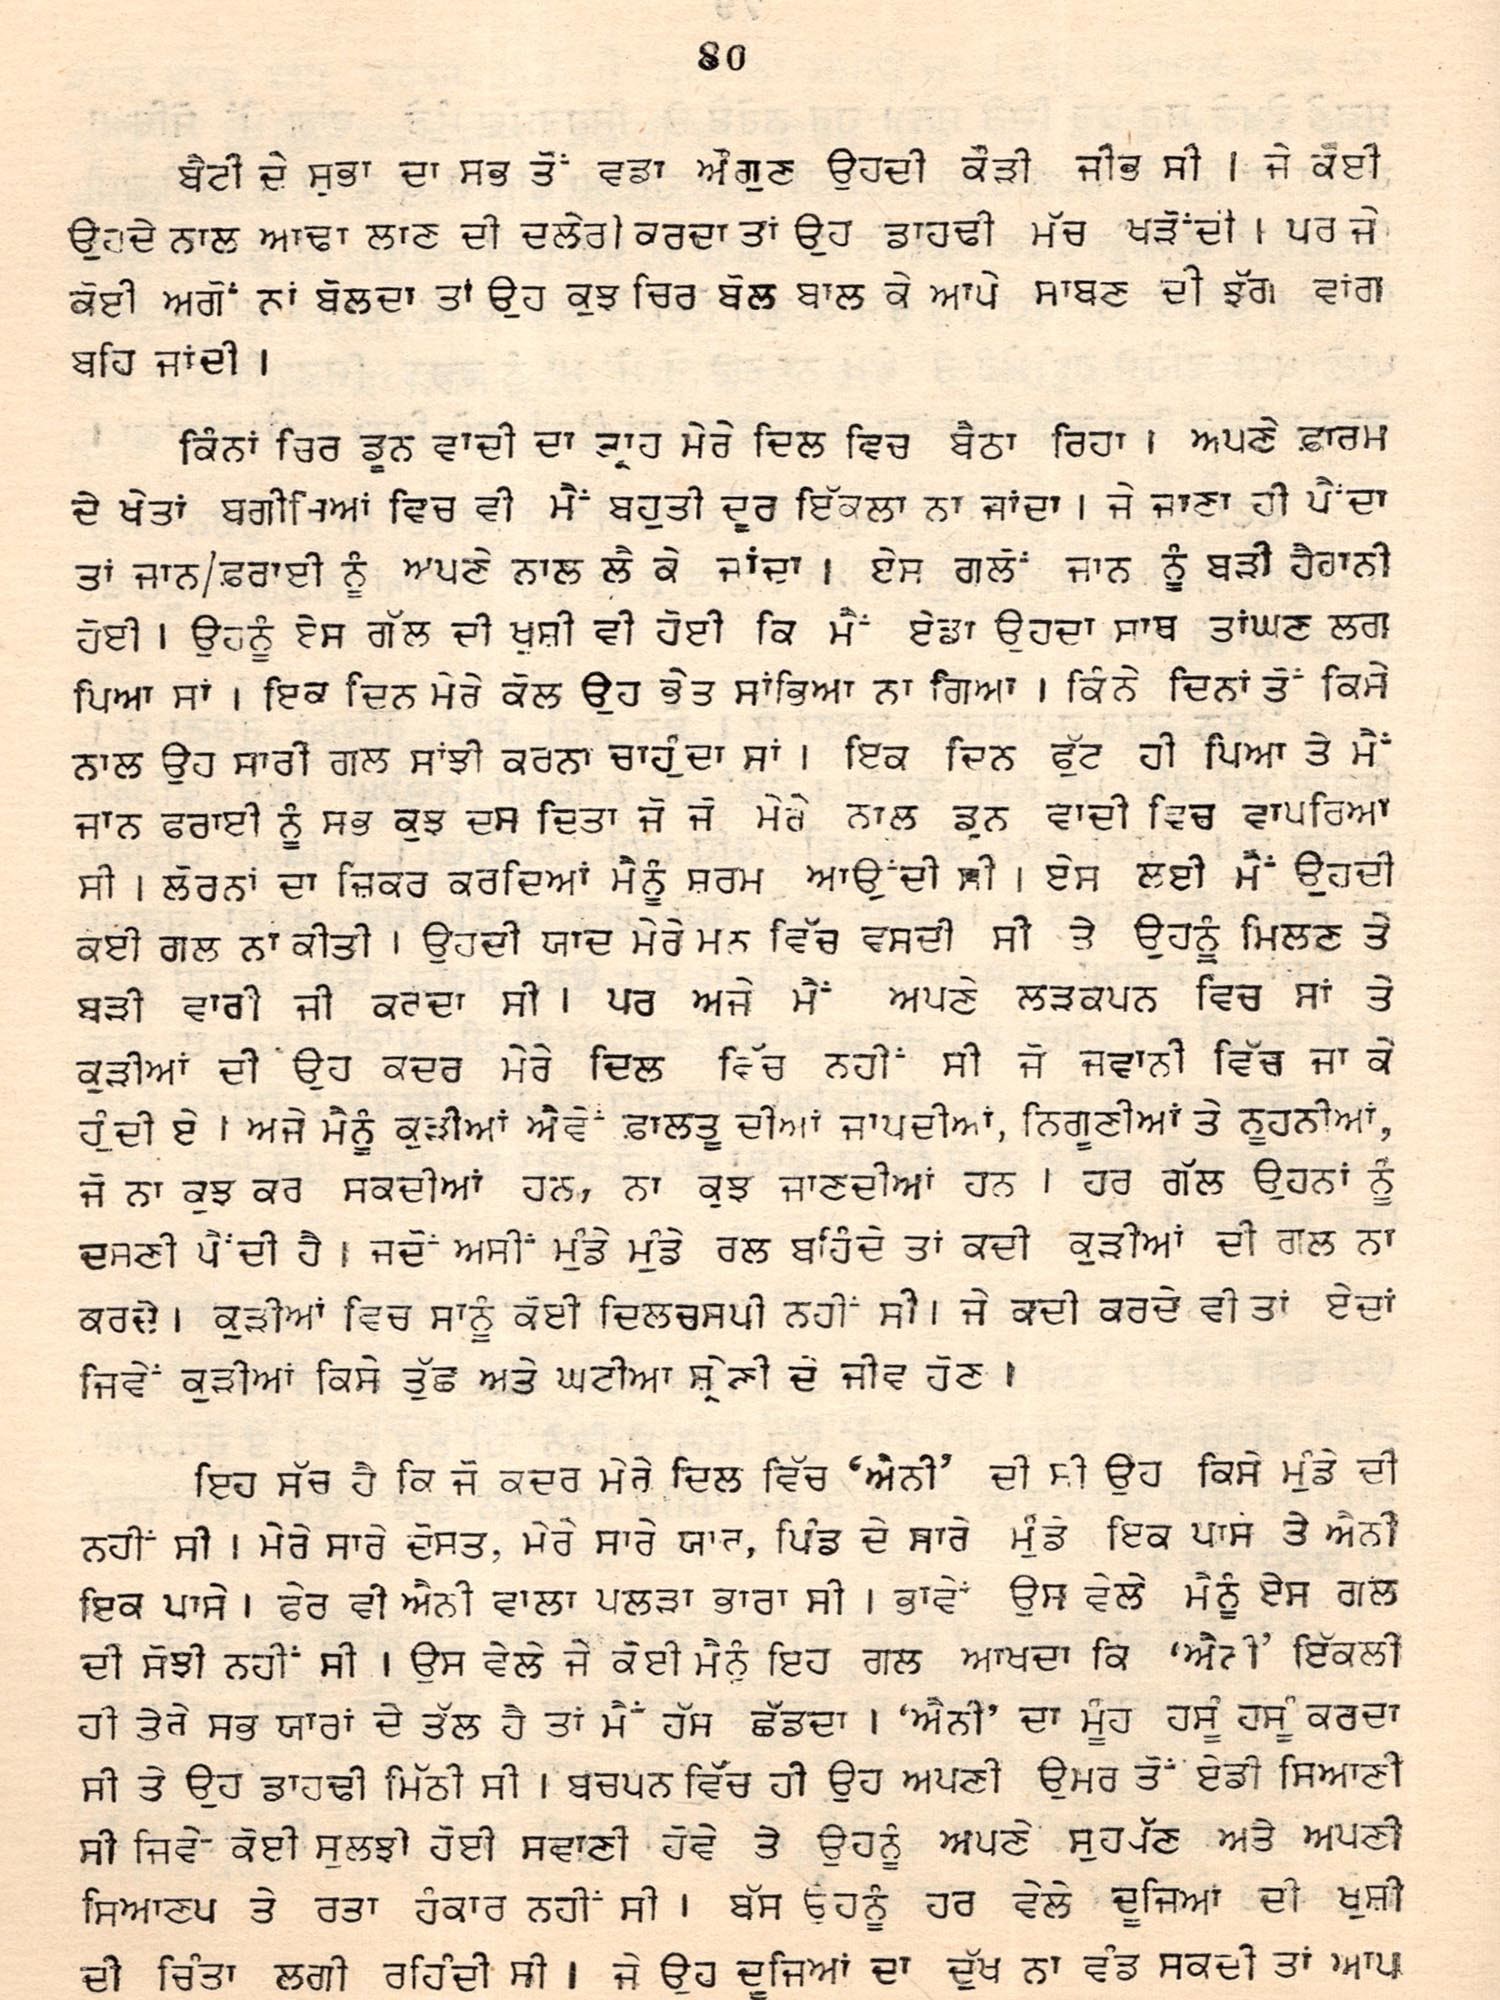 80
ਬੈਟੀ ਦੇ ਸੁਭਾ ਦਾ ਸਭ ਤੋਂ ਵਡਾ ਔਗੁਣ ਉਹਦੀ ਕੌੜੀ ਜੀਭ ਸੀ । ਜੇ ਕੋਈ
ਉਹਦੇ ਨਾਲ ਆਢਾ ਲਾਣ ਦੀ ਦਲੇਰੀ ਕਰਦਾ ਤਾਂ ਉਹ ਡਾਹਢੀ ਮੱਚ ਖੜੋਂਦੀ । ਪਰ ਜੇ
ਕੋਈ ਅਗੋਂ ਨਾਂ ਬੋਲਦਾ ਤਾਂ ਉਹ ਕੁਝ ਚਿਰ ਬੋਲ ਬਾਲ ਕੇ ਆਪੇ ਸਾਬਣ ਦੀ ਝੱਗ ਵਾਂਗ
ਬਹਿ ਜਾਂਦੀ ।
ਕਿੰਨਾਂ ਚਿਰ ਡੂਨ ਵਾਦੀ ਦਾ ਤ੍ਰਾਹ ਮੇਰੇ ਦਿਲ ਵਿਚ ਬੈਠਾ ਰਿਹਾ । ਅਪਣੇ ਫ਼ਾਰਮ
ਦੇ ਖੇਤਾਂ ਬਗੀਚਿਆਂ ਵਿਚ ਵੀ ਮੈਂ ਬਹੁਤੀ ਦੂਰ ਇੱਕਲਾ ਨਾ ਜਾਂਦਾ । ਜੇ ਜਾਣਾ ਹੀ ਪੈਂਦਾ
ਤਾਂ ਜਾਨ/ਫ਼ਰਾਈ ਨੂੰ ਅਪਣੇ ਨਾਲ ਲੈ ਕੇ ਜਾਂਦਾ । ਏਸ ਗਲੋਂ ਜਾਨ ਨੂੰ ਬੜੀ ਹੈਰਾਨੀ
ਹੋਈ । ਉਹਨੂੰ ਏਸ ਗੱਲ ਦੀ ਖੁਸ਼ੀ ਵੀ ਹੋਈ ਕਿ ਮੈਂ ਏਡਾ ਉਹਦਾ ਸਾਥ ਤਾਂਘਣ ਲਗ
ਪਿਆ ਸਾਂ । ਇਕ ਦਿਨ ਮੇਰੇ ਕੋਲ ਉਹ ਭੇਤ ਸਾਂਭਿਆ ਨਾ ਗਿਆ । ਕਿੰਨੇ ਦਿਨਾਂ ਤੋਂ ਕਿਸੇ
ਨਾਲ ਉਹ ਸਾਰੀ ਗਲ ਸਾਂਝੀ ਕਰਨਾ ਚਾਹੁੰਦਾ ਸਾਂ । ਇਕ ਦਿਨ ਫੁੱਟ ਹੀ ਪਿਆ ਤੇ ਮੈਂ
ਜਾਨ ਫਰਾਈ ਨੂੰ ਸਭ ਕੁਝ ਦਸ ਦਿਤਾ ਜੋ ਜੋ ਮੇਰੇ ਨਾਲ ਡੂਨ ਵਾਦੀ ਵਿਚ ਵਾਪਰਿਆ
ਸੀ । ਲੋਰਨਾਂ ਦਾ ਜ਼ਿਕਰ ਕਰਦਿਆਂ ਮੈਨੂੰ ਸ਼ਰਮ ਆਉਂਦੀ ਸੀ । ਏਸ ਲਈ ਮੈਂ ਉਹਦੀ
ਕਈ ਗਲ ਨਾ ਕੀਤੀ । ਉਹਦੀ ਯਾਦ ਮੇਰੇ ਮਨ ਵਿੱਚ ਵਸਦੀ ਸੀ ਤੇ ਉਹਨੂੰ ਮਿਲਣ ਤੇ
ਬੜੀ ਵਾਰੀ ਜੀ ਕਰਦਾ ਸੀ । ਪਰ ਅਜੇ ਮੈਂ ਅਪਣੇ ਲੜਕਪਨ ਵਿਚ ਸਾਂ ਤੇ
ਕੁੜੀਆਂ ਦੀ ਉਹ ਕਦਰ ਮੇਰੇ ਦਿਲ ਵਿੱਚ ਨਹੀਂ ਸੀ ਜੋ ਜਵਾਨੀ ਵਿੱਚ ਜਾ ਕੇ
ਹੁੰਦੀ ਏ । ਅਜੇ ਮੈਨੂੰ ਕੁੜੀਆਂ ਐਵੇਂ ਫ਼ਾਲਤੂ ਦੀਆਂ ਜਾਪਦੀਆਂ, ਨਿਗੂਣੀਆਂ ਤੇ ਨੂਹਨੀਆਂ,
ਜੋ ਨਾ ਕੁਝ ਕਰ ਸਕਦੀਆਂ ਹਨ, ਨਾ ਕੁਝ ਜਾਣਦੀਆਂ ਹਨ । ਹਰ ਗੱਲ ਉਹਨਾਂ ਨੂੰ
ਦਸਣੀ ਪੈਂਦੀ ਹੈ । ਜਦੋਂ ਅਸੀਂ ਮੁੰਡੇ ਮੁੰਡੇ ਰਲ ਬਹਿੰਦੇ ਤਾਂ ਕਦੀ ਕੁੜੀਆਂ ਦੀ ਗਲ ਨਾ
ਕਰਦੇ । ਕੁੜੀਆਂ ਵਿਚ ਸਾਨੂੰ ਕੋਈ ਦਿਲਚਸਪੀ ਨਹੀਂ ਸੀ । ਜੇ ਕਦੀ ਕਰਦੇ ਵੀ ਤਾਂ ਏਦਾਂ
ਜਿਵੇਂ ਕੁੜੀਆਂ ਕਿਸੇ ਤੁੱਛ ਅਤੇ ਘਟੀਆ ਸ਼੍ਰੇਣੀ ਦੇ ਜੀਵ ਹੋਣ ।
ਇਹ ਸੱਚ ਹੈ ਕਿ ਜੋ ਕਦਰ ਮੇਰੇ ਦਿਲ ਵਿੱਚ ‘ਐਨੀ’ ਦੀ ਸੀ ਉਹ ਕਿਸੇ ਮੁੰਡੇ ਦੀ
ਨਹੀਂ ਸੀ । ਮੇਰੇ ਸਾਰੇ ਦੋਸਤ, ਮੇਰੇ ਸਾਰੇ ਯਾਰ, ਪਿੰਡ ਦੇ ਸਾਰੇ ਮੁੰਡੇ ਇਕ ਪਾਸੇ ਤੇ ਐਨੀ
ਇਕ ਪਾਸੇ । ਫੇਰ ਵੀ ਐਨੀ ਵਾਲਾ ਪਲੜਾ ਭਾਰਾ ਸੀ । ਭਾਵੇਂ ਉਸ ਵੇਲੇ ਮੈਨੂੰ ਏਸ ਗਲ
ਦੀ ਸੋਝੀ ਨਹੀਂ ਸੀ । ਉਸ ਵੇਲੇ ਜੇ ਕੋਈ ਮੈਨੂੰ ਇਹ ਗਲ ਆਖਦਾ ਕਿ ‘ਐਨੀ’ ਇੱਕਲੀ
ਹੀ ਤੇਰੇ ਸਭ ਯਾਰਾਂ ਦੇ ਤੱਲ ਹੈ ਤਾਂ ਮੈਂ ਹੱਸ ਛੱਡਦਾ । ‘ਐਨੀ’ ਦਾ ਮੂੰਹ ਹਸੂੰ ਹਸੂੰ ਕਰਦਾ
ਸੀ ਤੇ ਉਹ ਡਾਹਢੀ ਮਿੱਠੀ ਸੀ । ਬਚਪਨ ਵਿੱਚ ਹੀ ਉਹ ਅਪਣੀ ਉਮਰ ਤੋਂ ਏਡੀ ਸਿਆਣੀ
ਸੀ ਜਿਵੇਂ ਕੋਈ ਸੁਲਝੀ ਹੋਈ ਸਵਾਣੀ ਹੋਵੇ ਤੇ ਉਹਨੂੰ ਅਪਣੇ ਸੁਹੱਪਣ ਅਤੇ ਅਪਣੀ
ਸਿਆਣਪ ਤੇ ਰਤਾ ਹੰਕਾਰ ਨਹੀਂ ਸੀ । ਬੱਸ ਓਹਨੂੰ ਹਰ ਵੇਲੇ ਦੂਜਿਆਂ ਦੀ ਖੁਸ਼ੀ
ਦੀ ਚਿੰਤਾ ਲਗੀ ਰਹਿੰਦੀ ਸੀ । ਜੇ ਉਹ ਦੂਜਿਆਂ ਦਾ ਦੁੱਖ ਨਾ ਵੰਡ ਸਕਦੀ ਤਾਂ ਆਪ